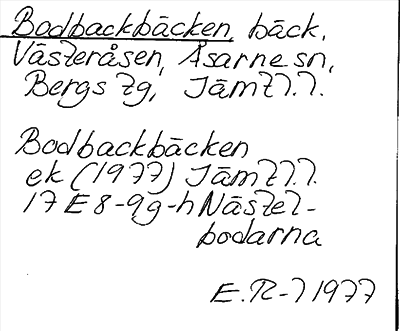 Bodbackbäcken, bäck,
Västeråsen, Åsarne sn,
Bergs tg, Jämtl.
Bodbackbäcken
ek (1977) Jämtl.
17 E 8-9g-h Nästel-
bodarna
E. R-l 1977